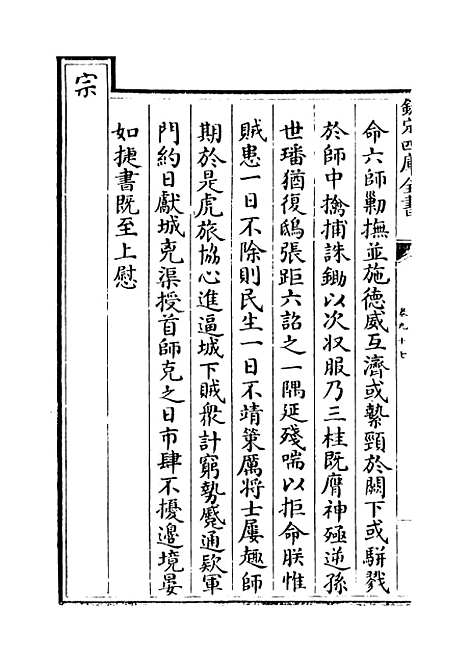 欽定四庫全書
卷九十七
命六師勦撫並施德威互濟或縶頸於闕下或駢戮
於師中擒捕誅鋤以次収服乃三桂既膺神殛逆孫
世璠猶復鴟張距六詔之一隅延殘喘以拒命朕惟
賊患一日不除則民生一日不靖策厲将士屢趣師
期於是虎旅協心進逼城下賊衆計窮勢蹙通欵軍
門約日獻城克渠授首師克之日市肆不擾邊境晏
如捷書既至上慰
宗